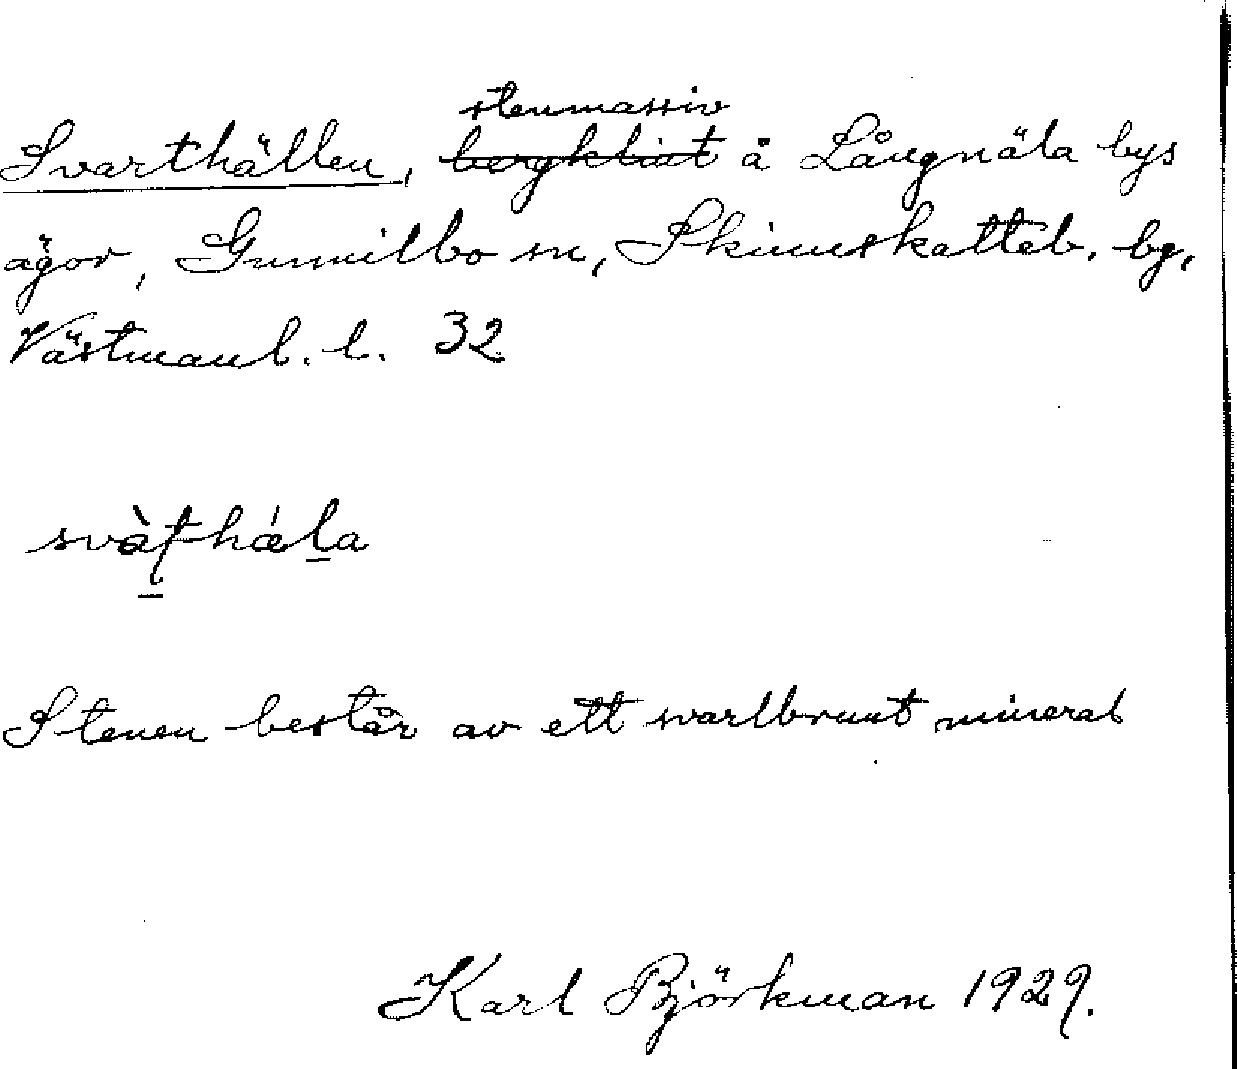 stenmassiv
Svarthällen, bergklint å Långnäla bys
ägor, Gunnilbo sn, Skinnskatteb. bg,
Västmanl. l. 32
Stenen består av ett svartbrunt mineral
Karl Björkman 1929.